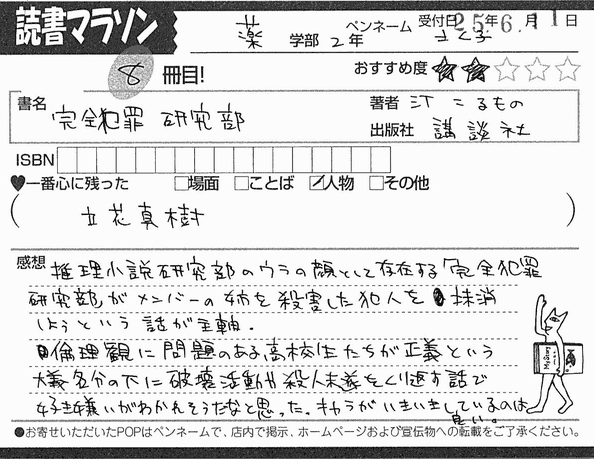 読書マラソン
薬 学部 2年 ペンネーム さくま 受付日 25年 6月 11日
8 冊目! おすすめ度 ★★☆☆☆
書名 完全犯罪研究部 著者 汀こるもの
出版社 講談社
ISBN
♥一番心に残った □場面 □ことば ☑人物 □その他
( 立花真樹 )
感想 推理小説研究部のウラの顔として存在する「完全犯罪
研究部」がメンバーの姉を殺害した犯人を抹消
しようという話が主軸.
倫理観に問題のある高校生たちが正義という
大義名分の下に破壊活動や殺人未遂をくり返す話で
好き嫌いがわかれそうだなと思った。キャラがいきいきしているのは
良い。
●お寄せいただいたPOPはペンネームで、店内で掲示、ホームページおよび宣伝物への転載をご了承ください。